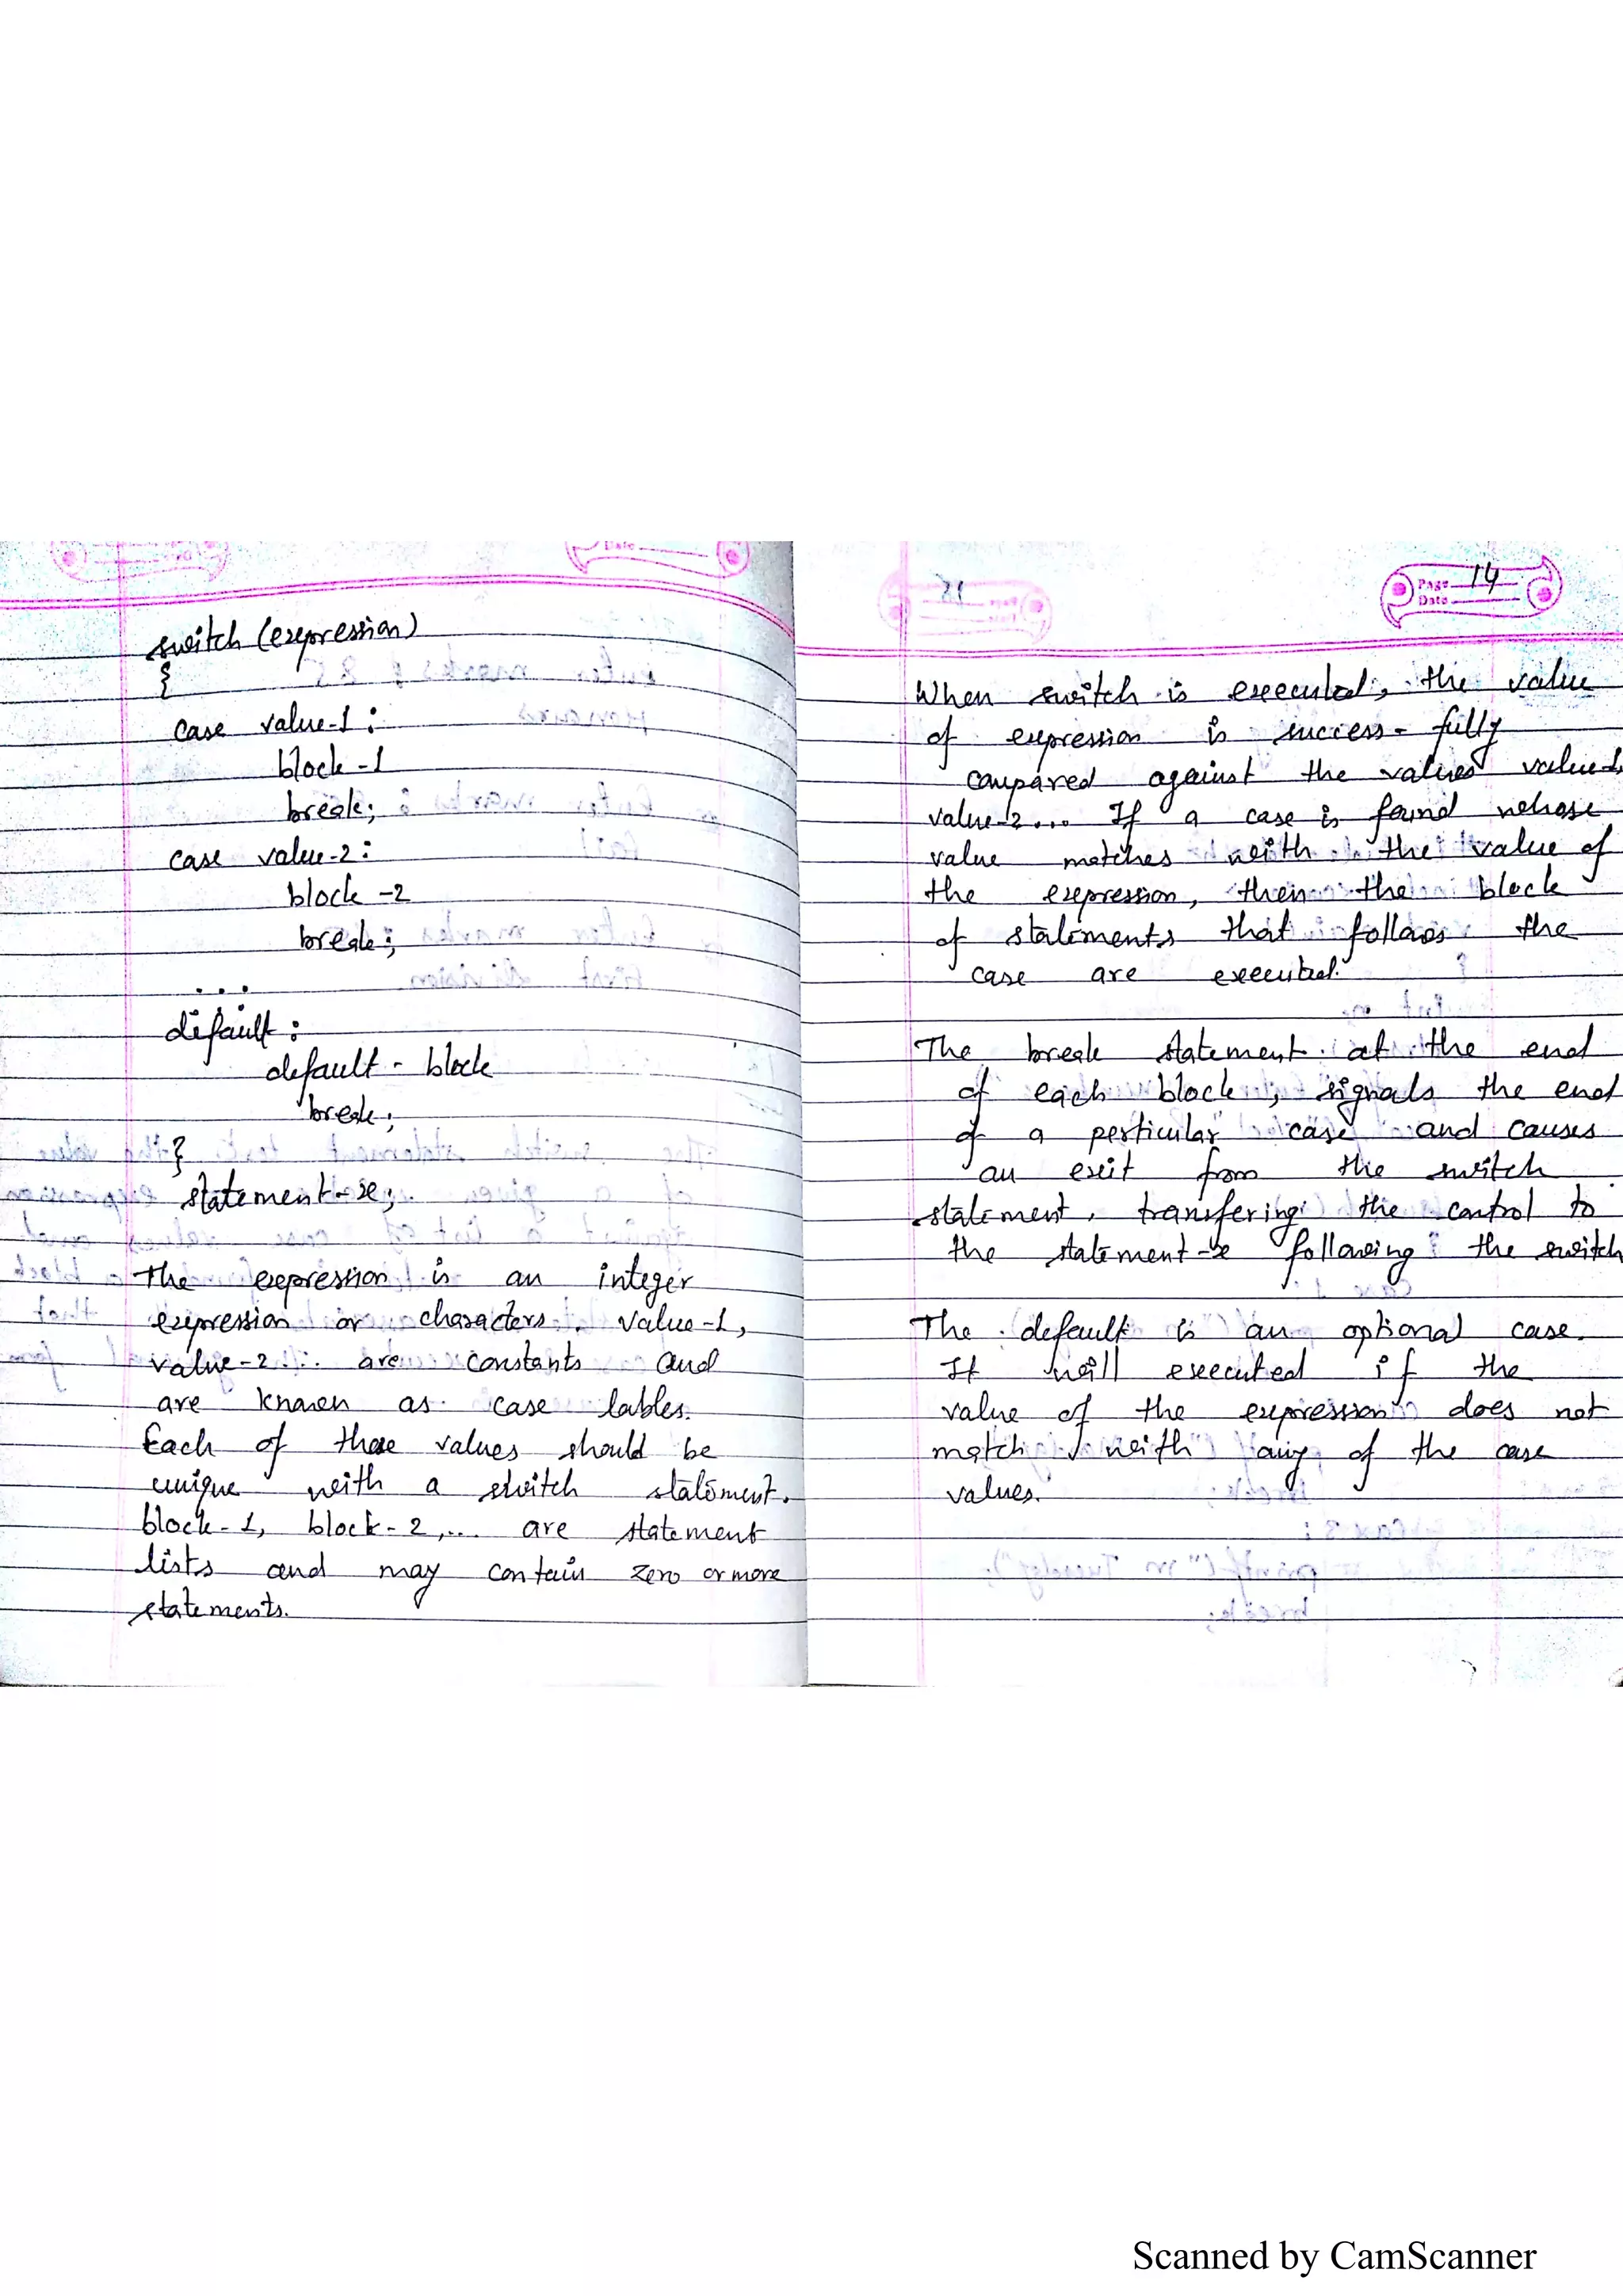 switch (expression)
{
case value-1:
block-1
break;
case value-2:
block-2
break;
...
default:
default-block
break;
}
statement-x;
The expression is an integer
expression or characters. value-1,
value-2... are constants and
are known as case lables.
Each of these values should be
unique with a switch statement.
block-1, block-2,... are statement
lists and may contain zero or more
statements.
Page 14
Date
When switch is executed, the value
of expression is success-fully
compared against the values value-1,
value-2... If a case is found whose
value matches with the value of
the expression, then the block
of statements that follows the
case are executed.
The break statement at the end
of each block, signals the end
of a perticular case and causes
an exit from the switch
statement, transfering the control to
the statement-x following the switch
The default is an optional case.
It will executed if the
value of the expression does not
match with any of the case
values.
Scanned by CamScanner